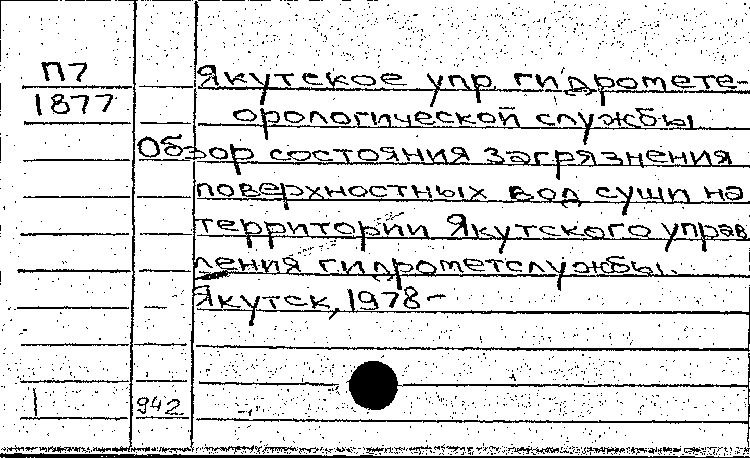 П7
1877
Якутское упр. гидромете-
орологической службы
Обзор состояния загрязнения
поверхностных вод суши на
территории Якутского управ
ления гидрометслужбы.
Якутск, 1978-
942